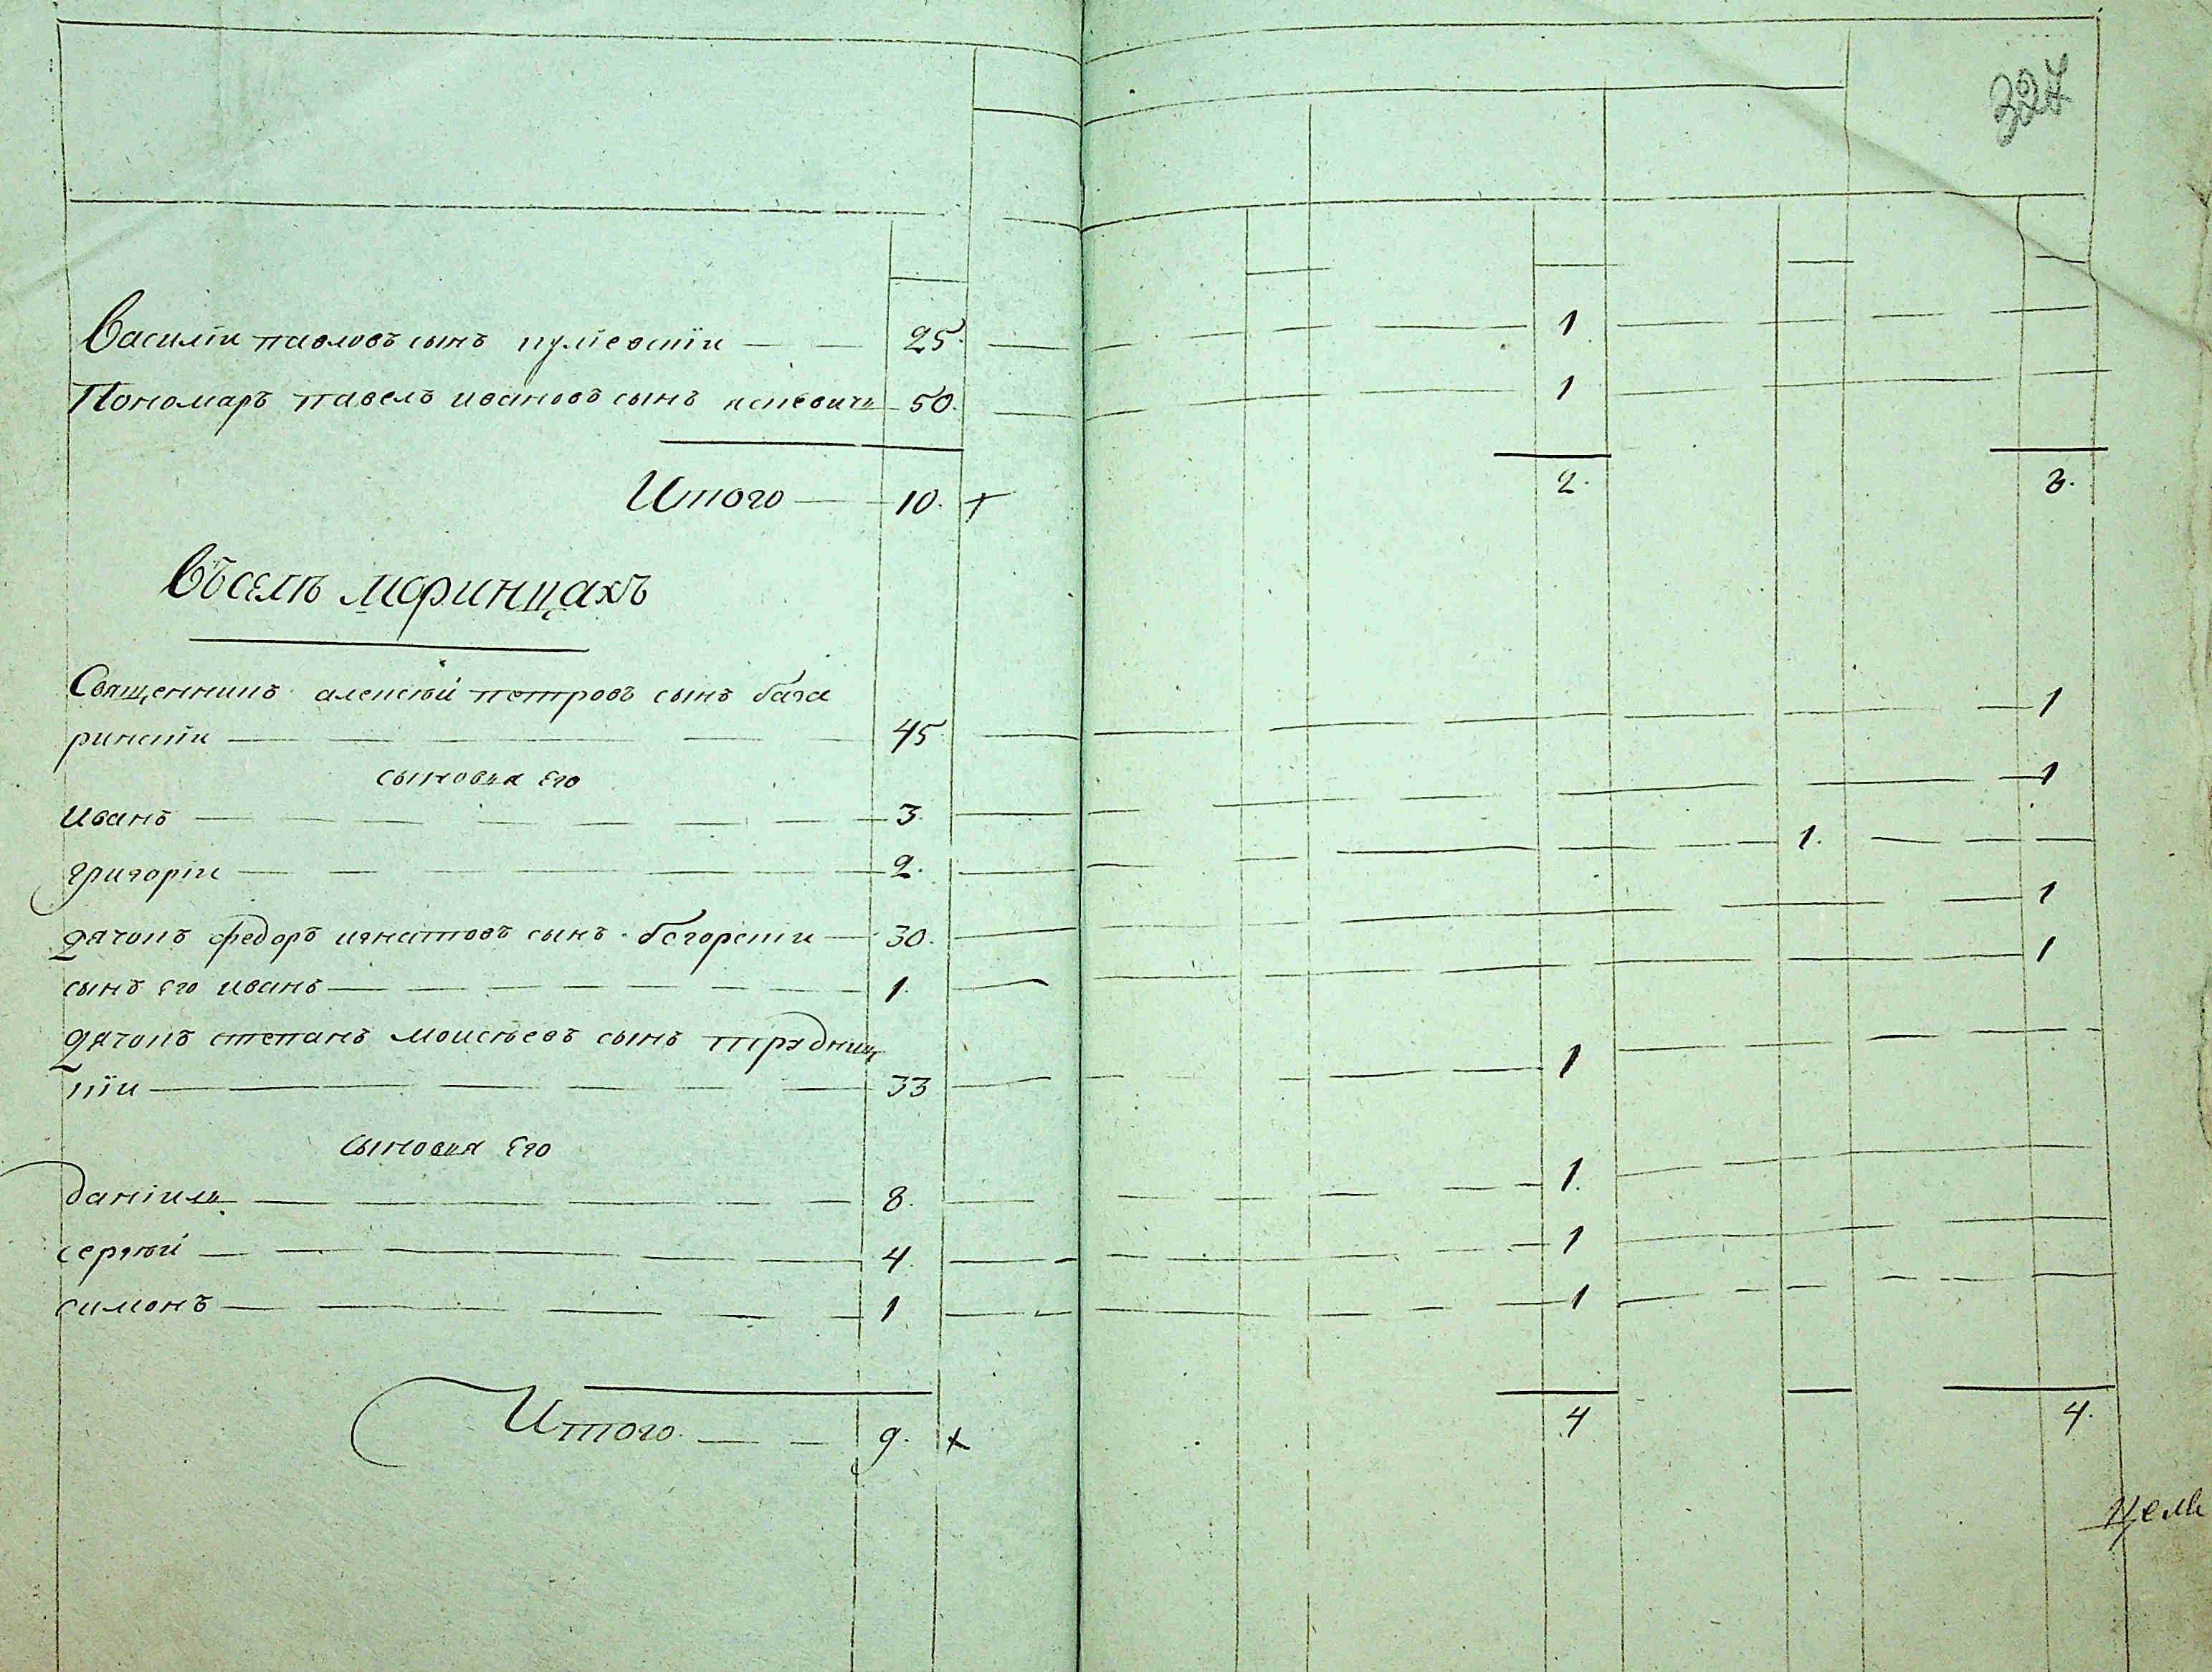 327
Василіи павловъ сынъ кулчевскіи 25. 1
Пономаръ павелъ ивановъ сынъ 50. 1
Итого 10. + 2. 8.
Въ селѣ моринцахъ
Священникъ алексѣй петровъ сынъ бага
ринскіи 45 1
сыновья его
иванъ 3. 1
григоріи 2. 1.
дячокъ федоръ игнатовъ сынъ багорскіи 30. 1
сынъ его иванъ 1. 1
дячокъ степанъ моисѣевъ сынъ трядниц
кіи 33 1
сыновья его
даніилъ 8. 1.
сергѣй 4. 1
симонъ 1 1
Итого 9. + 4 4.